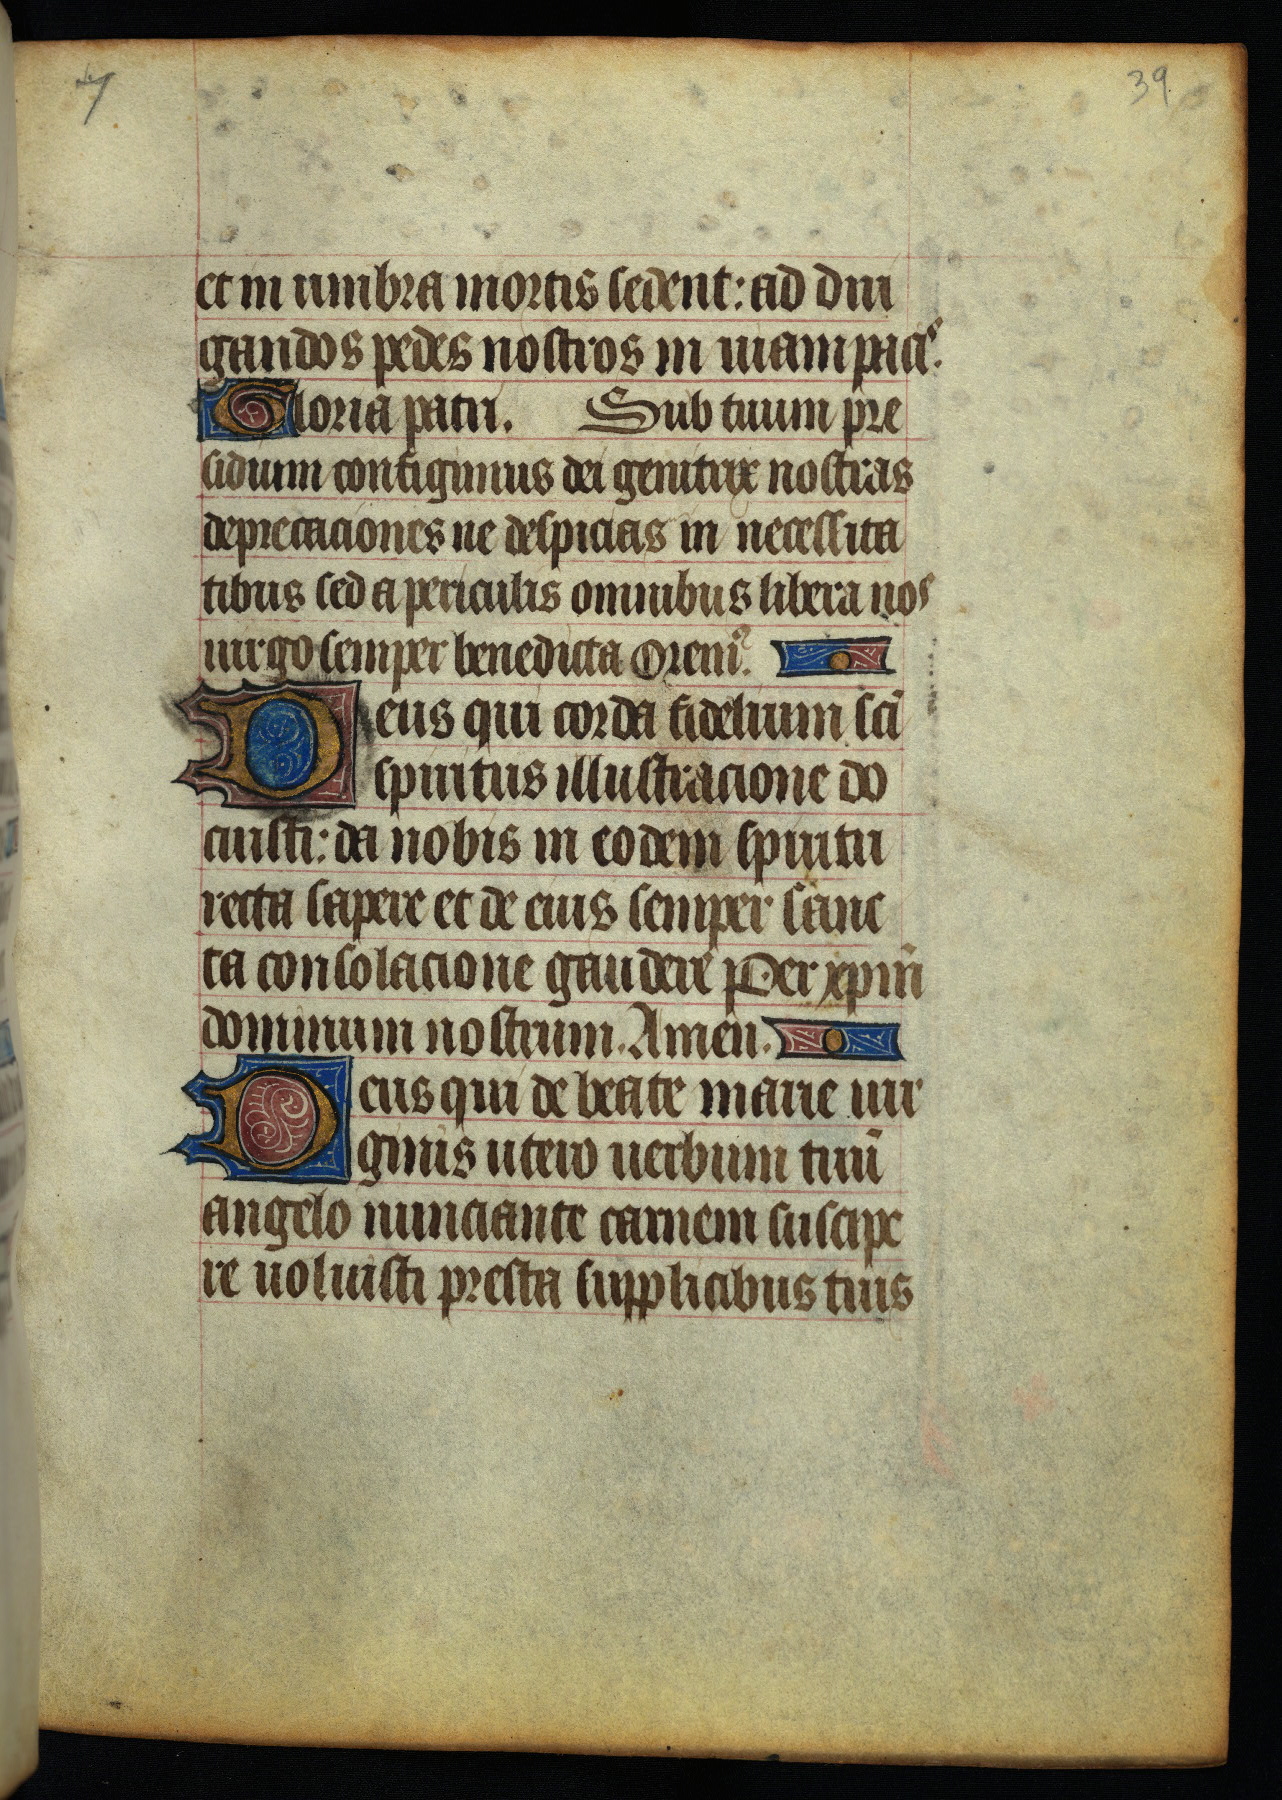 7
39
et in umbra mortis sedent: ad diri
gandos pedes nostros in uiam pacis.
Gloria patri. Sub tuum pre
sidium confugimus dei genitrix nostras
deprecaciones ne despicias in necessita
tibus sed a periculis omnibus libera nos
uirgo semper benedicta Orem9.
Deus qui corda fidelium sci̅
spiritus illustracione do
cuisti: da nobis in eodem spiritu
recta sapere et de eius semper sanc
ta consolacione gaudere Per xpm̅
dominum nostrum. Amen.
Deus qui de beate marie uir
ginis utero uerbum tuu̅
angelo nunciante carnem suscipe
re uoluisti presta supplicibus tuis